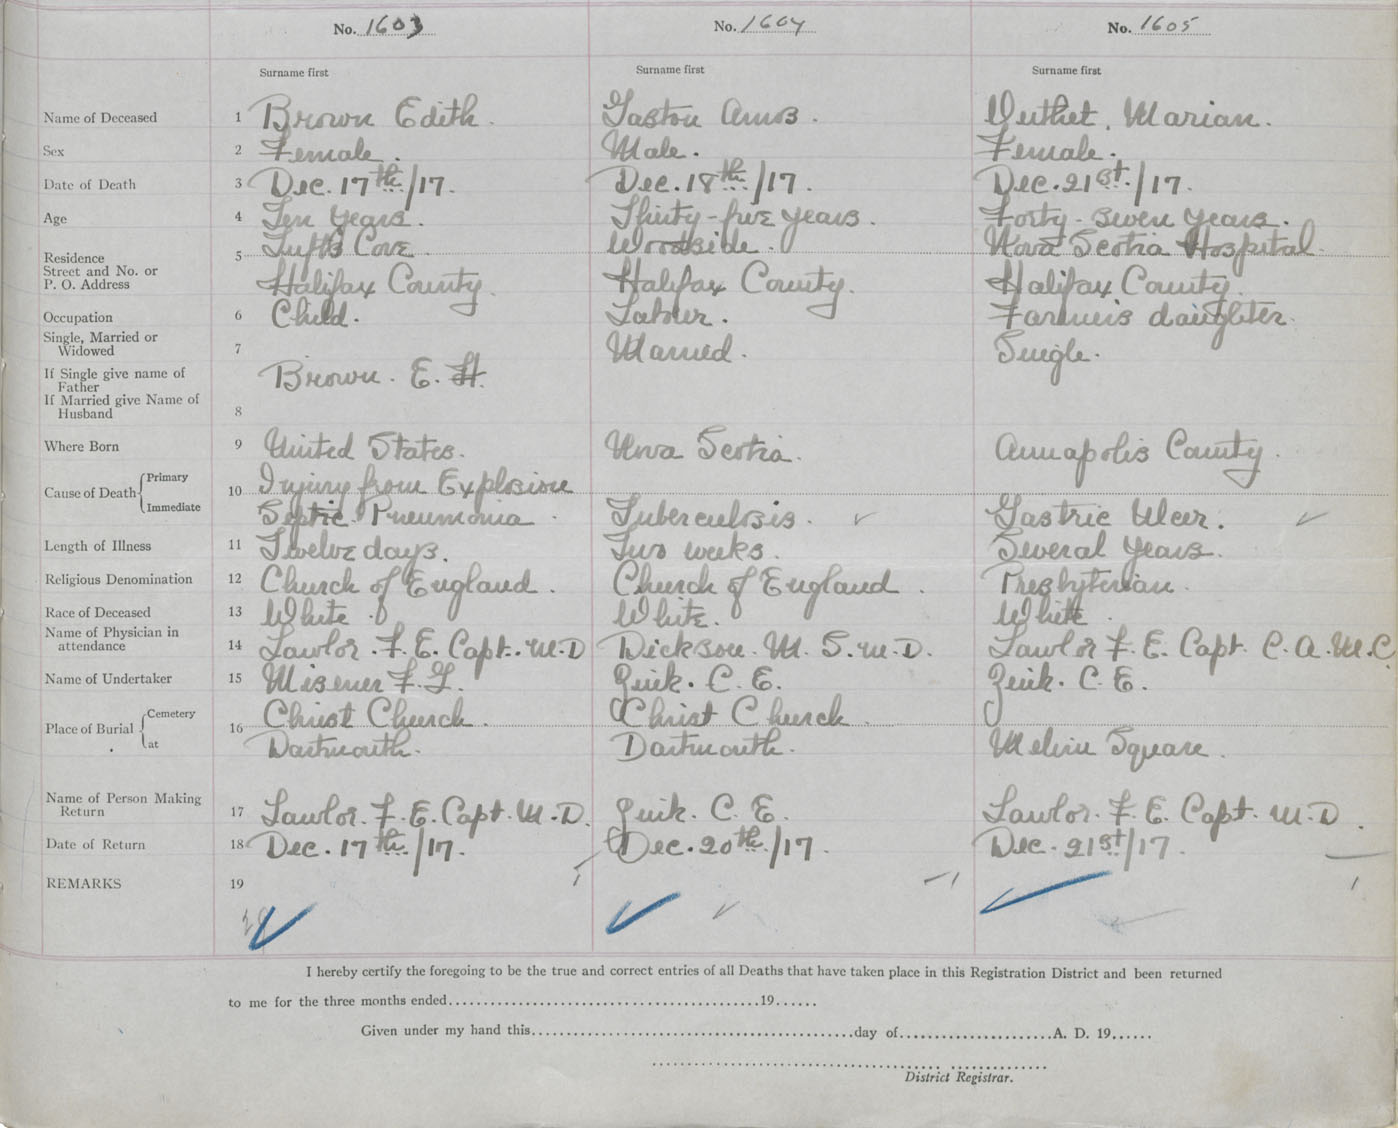 No. 1603
No. 1604
No. 1605
Surname first
Surname first
Surname first
Name of Deceased 1 Brown Edith. Gaston Amos. Marian.
Sex 2 Female. Male. Female.
Date of Death 3 Dec. 17th/17. Dec. 18th/17. Dec. 21st/17.
Age 4 Ten Years. Thirty-five years. Forty-seven years.
Residence
Street and No. or
P. O. Address
5 Tufts Cove Woodside. Nova Scotia Hospital.
Halifax County. Halifax County. Halifax County.
Occupation 6 Child. Labour. Farmer's daughter.
Single, Married or
Widowed
7 Married. Single.
If Single give name of
Father
Brown. E. H.
If Married give Name of
Husband
8
Where Born 9 United States. Nova Scotia. Annapolis County.
Cause of Death Primary
Immediate
10 Injury from Explosion
Septic Pneumonia. Tuberculosis. Gastric Ulcer.
Length of Illness 11 Twelve days. Two weeks. Several Years.
Religious Denomination 12 Church of England. Church of England. Presbyterian.
Race of Deceased 13 White. White. White.
Name of Physician in
attendance
14 Lawlor. F. E. Capt. M.D Dickson. M. S. M.D. Lawlor F. E. Capt. C.A.M.C
Name of Undertaker 15 Misener F. G. Zink. C. E. Zink. C. E.
Place of Burial Cemetery
at
16 Christ Church. Christ Church.
Dartmouth. Dartmouth. Melvin Square.
Name of Person Making
Return
17 Lawlor. F. E. Capt. M.D. Zink. C. E. Lawlor. F. E. Capt. M.D.
Date of Return 18 Dec. 17th/17. Dec. 20th/17. Dec. 21st/17.
REMARKS 19
I hereby certify the foregoing to be the true and correct entries of all Deaths that have taken place in this Registration District and been returned
to me for the three months ended....................19......
Given under my hand this....................day of....................A. D. 19......
District Registrar.